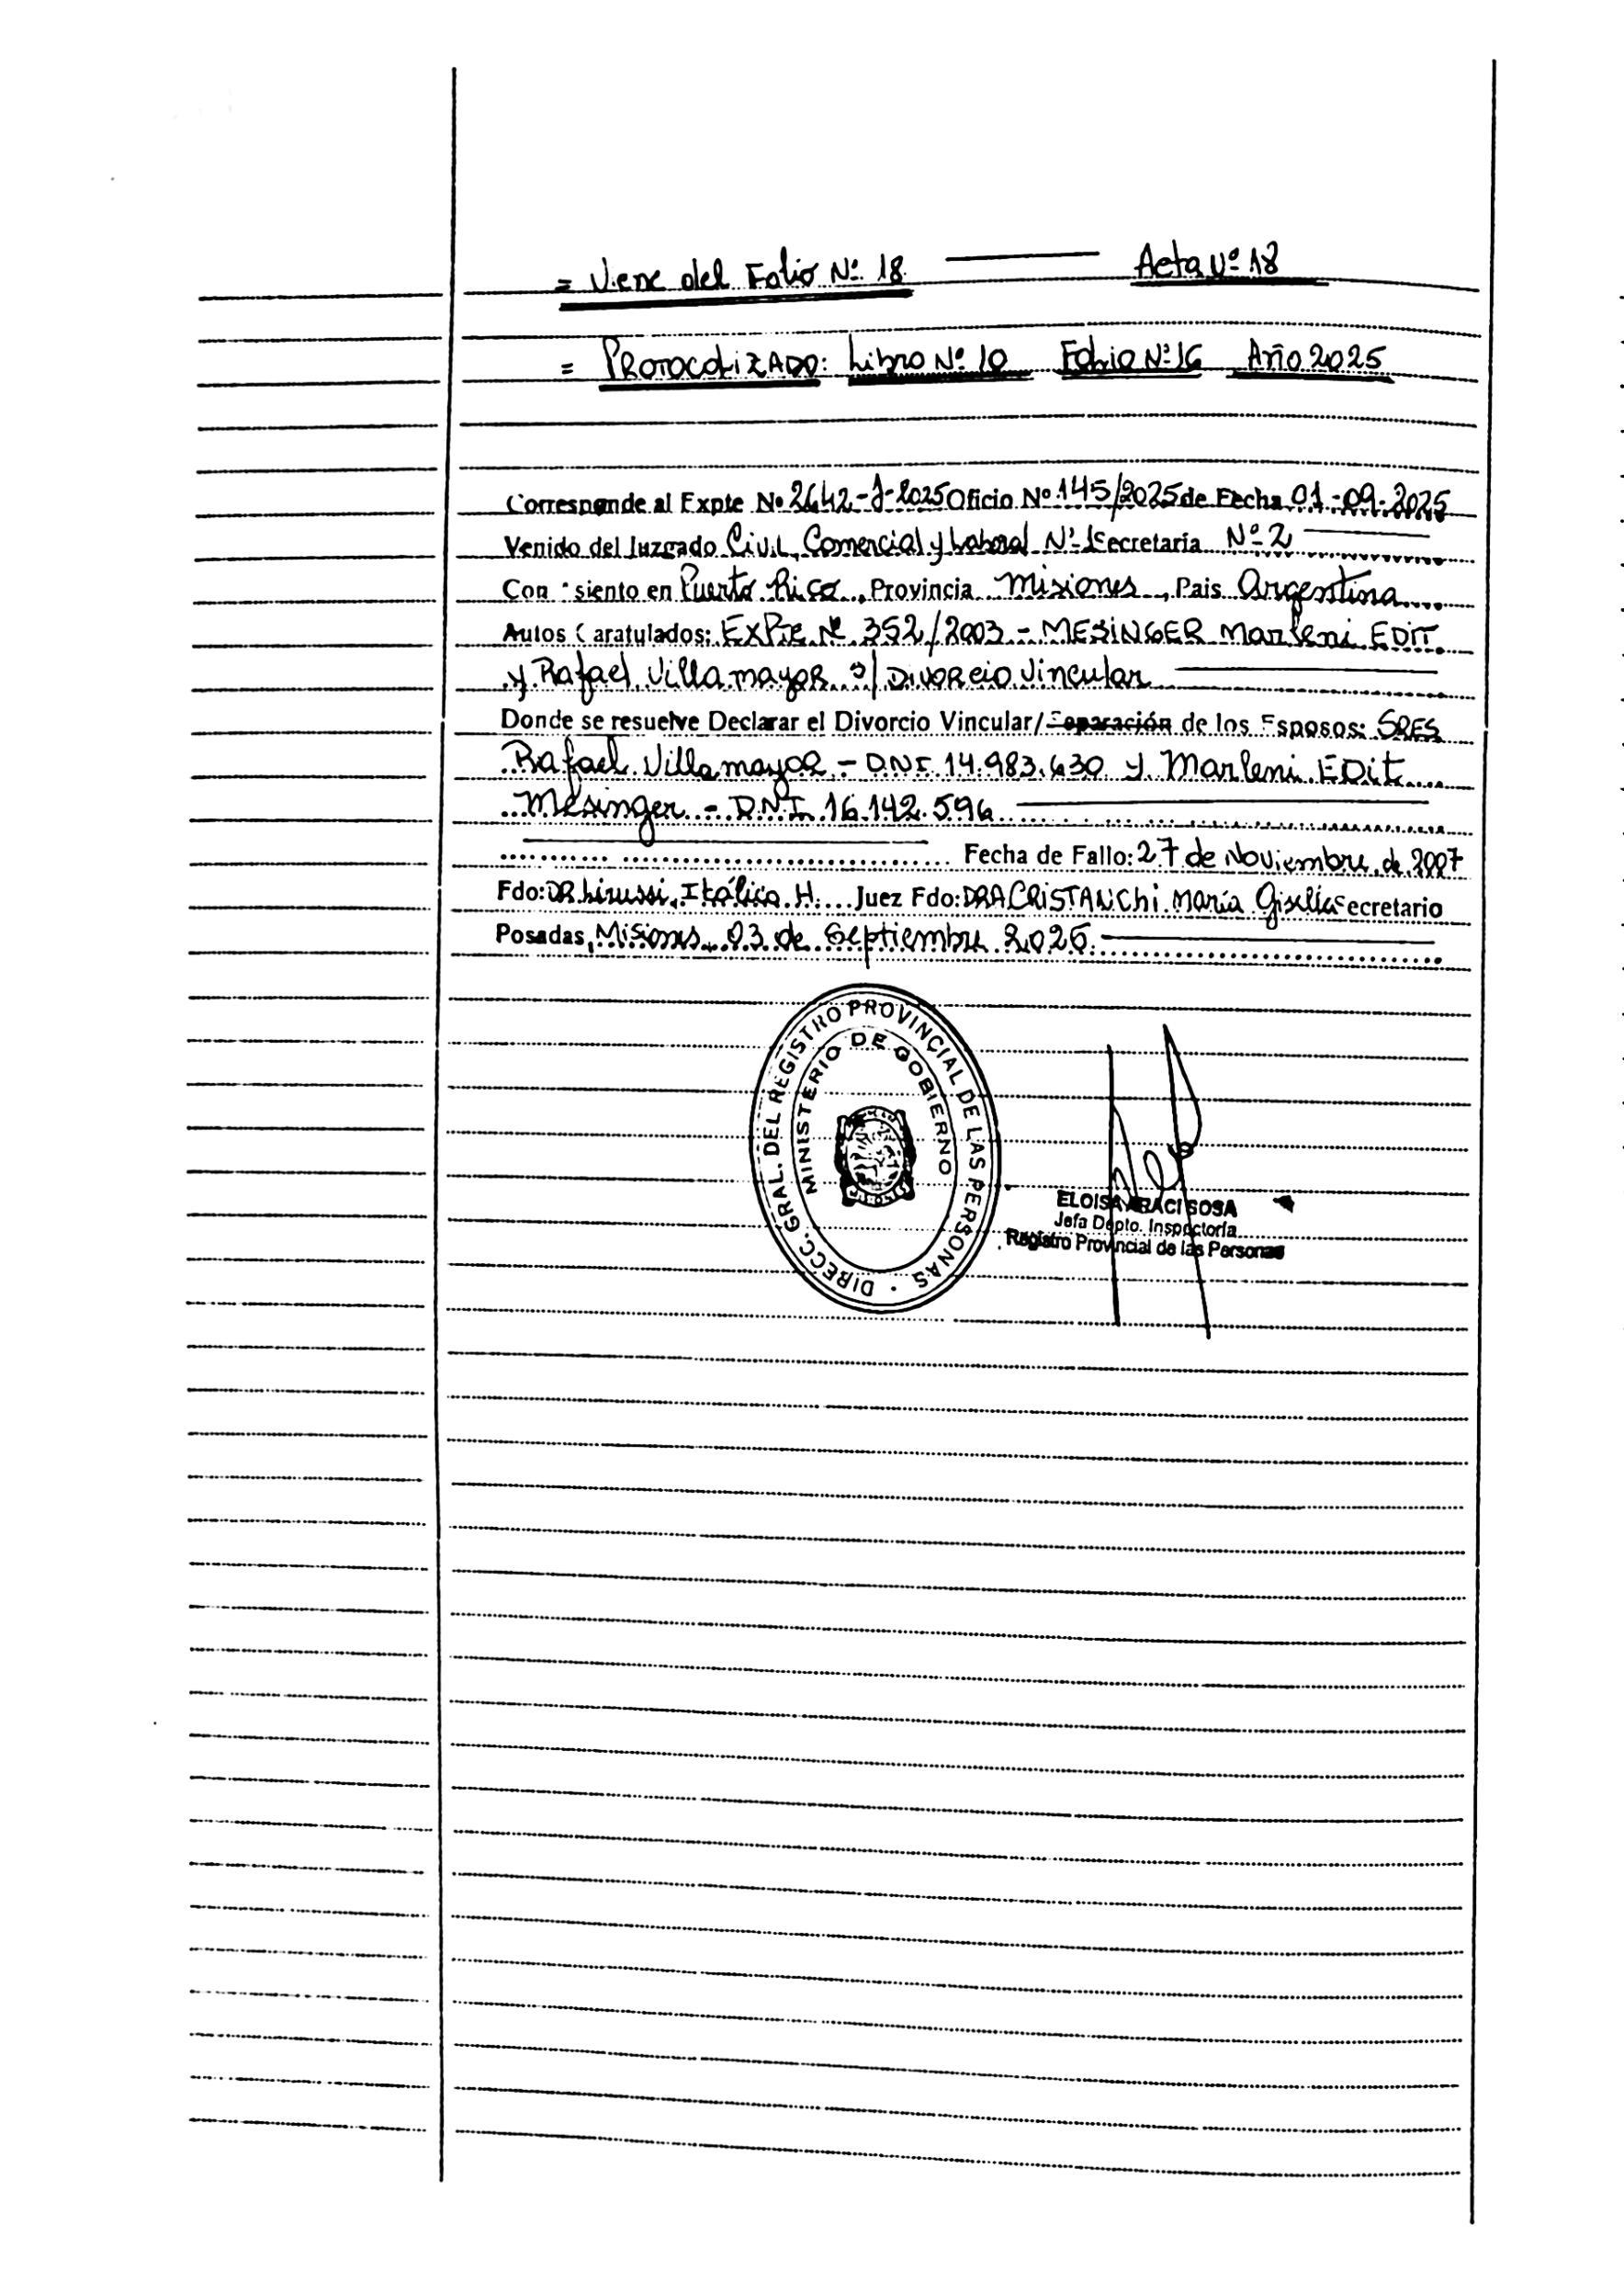 = Viene del Folio Nº 18. Acta Nº 18
= PROTOCOLIZADO: Libro Nº 10 Folio Nº 16 Año 2025
Corresponde al Expte Nº 2642-J-2025 Oficio Nº 145/2025 de Fecha 01-09-2025
Venido del Juzgado Civil, Comercial y Laboral Nº 1 Secretaría Nº 2
Con asiento en Puerto Rico, Provincia Misiones, Pais Argentina
Autos Caratulados: EXPTE Nº 352/2003 - MESINGER Marleni EDIT
y Rafael Villamayor s/ Divorcio Vincular
Donde se resuelve Declarar el Divorcio Vincular/Separación de los Esposos: SRES
Rafael Villamayor - DNI. 14.983.630 y Marleni EDit
Mesinger - D.N.I. 16.142.596
Fecha de Fallo: 27 de Noviembre de 2007
Fdo: DR Itálico H. Juez Fdo: DRA CRISTANCHI María Gisella Secretario
Posadas, Misiones, 03 de Septiembre 2025.
DIRECC. GRAL. DEL REGISTRO PROVINCIAL DE LAS PERSONAS
MINISTERIO DE GOBIERNO
ELOISA ARACI SOSA
Jefa Depto. Inspectoría
Registro Provincial de las Personas